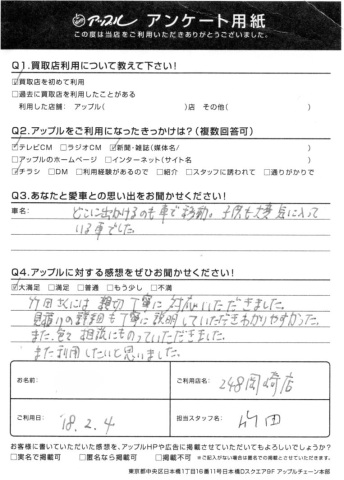 アップル アンケート用紙
この度は当店をご利用いただきありがとうございました。
Q1.買取店利用について教えて下さい!
☑買取店を初めて利用
□過去に買取店を利用したことがある
利用した店舗: アップル( )店 その他( )
Q2.アップルをご利用になったきっかけは?(複数回答可)
☑テレビCM □ラジオCM ☑新聞・雑誌(媒体名/ )
□アップルのホームページ □インターネット(サイト名 )
☑チラシ □DM □利用経験があるので □紹介 □スタッフに誘われて □通りがかりで
Q3.あなたと愛車との思い出をお聞かせください!
車名: どこに出かけるのも車で移動。子供も大変気に入って
いる車でした
Q4.アップルに対する感想をぜひお聞かせください!
☑大満足 □満足 □普通 □もう少し □不満
竹田さんには親切丁寧に対応いただきました。
見積りの詳細も丁寧に説明していただきわかりやすかった。
また、色々相談にものっていただきました。
また利用したいと思いました。
お名前:
ご利用店名: 248岡崎店
ご利用日: '18.2.4
担当スタッフ名: 竹田
お客様に書いていただいた感想を、アップルHPや広告に掲載させていただいてもよろしいでしょうか?
□実名で掲載可 □匿名なら掲載可 □掲載不可 ※ご記入がない場合は匿名での掲載とさせていただきます。
東京都中央区日本橋1丁目16番11号日本橋Dスクエア9F アップルチェーン本部